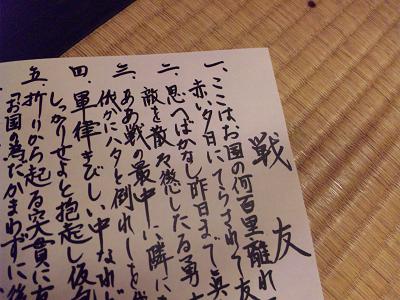 戦友
一、ここはお国の何百里離れ
赤い夕日にてらされて友
二、思へばかなし昨日まで真
敵を散々懲したる勇士
三、ああ戦の最中に隣に
俄かにハタと倒れしを
四、軍律きびしい中なれど
しっかりせよと抱起し仮包
五、折りから起る突貫に友
お国の為だかまわずに後